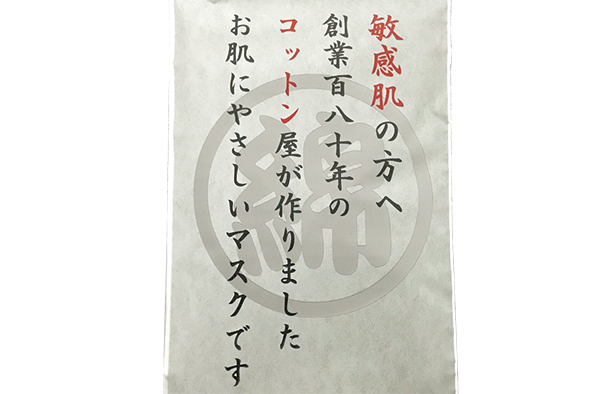 敏感肌の方へ
創業百八十年の
コットン屋が作りました
お肌にやさしいマスクです
綿